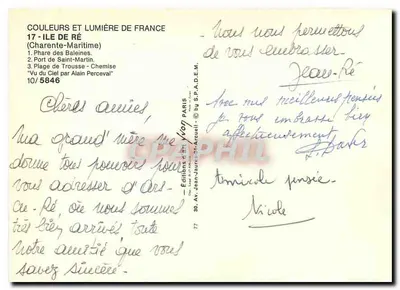 COULEURS ET LUMIÈRE DE FRANCE
17 - ILE DE RÉ
(Charente-Maritime)
1. Phare des Baleines.
2. Port de Saint-Martin.
3. Plage de Trousse - Chemise
"Vu du Ciel par Alain Perceval"
10/5846
Chères amies,
Ma grand' mère me
donne tous pouvoirs pour
vous adresser d'Ars-
en-Ré, où nous sommes
très bien arrivés toute
notre amitié que vous
savez sincère.
Editions Yvon PARIS
© by S.P.A.D.E.M.
Nous nous permettons
de vous embrasser.
Jean-Ré
Avec mes meilleures pensées
je vous embrasse bien
affectueusement
Amicale pensée.
Nicole